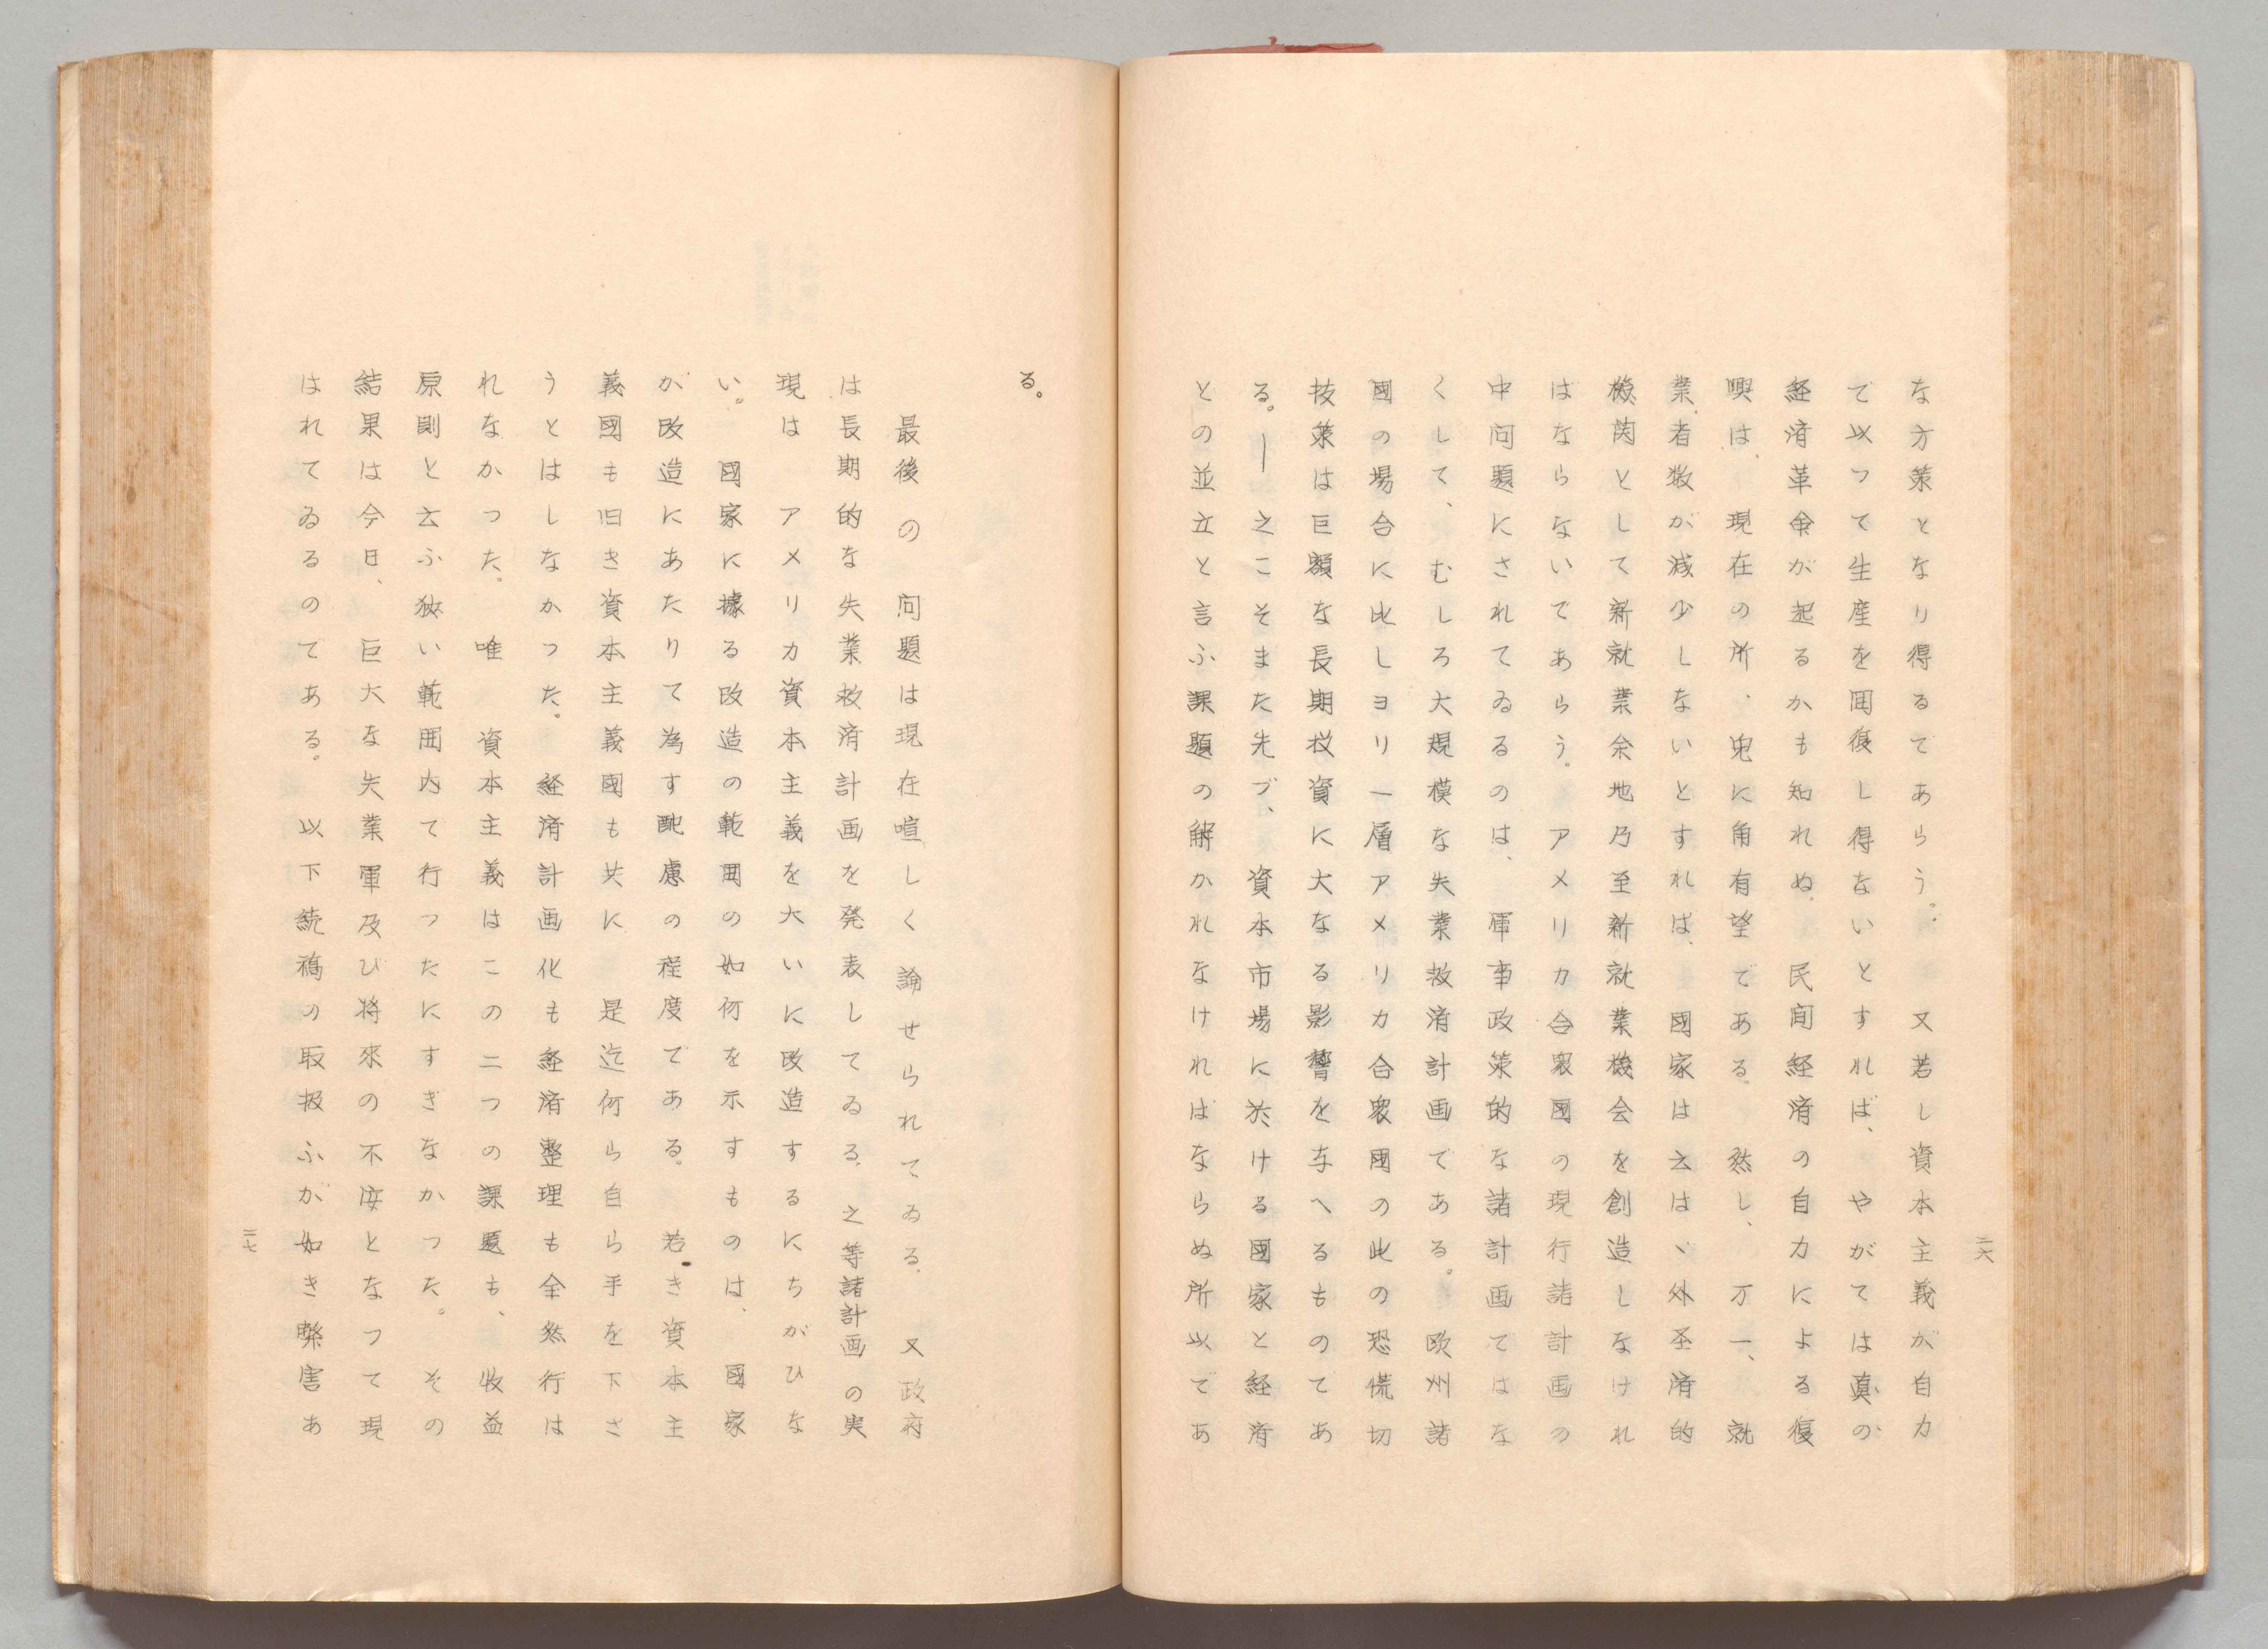 な方策となり得るであらう。　又若し資本主義が自力
で以つて生産を囬復し得ないとすれば、やがては真の
経済革命が起るかも知れぬ。民间経済の自力による復
興は、現在の所、兎に角有望である。然し、万一、就
業者数が減少しないとすれば、國家は云はゞ外圣済的
機関として新就業余地乃至新就業機会を創造しなけれ
ばならないであらう。アメリカ合衆國の現行諸計画の
中问題にされてゐるのは、軍事政策的な諸計画ではな
くして、むしろ大規模な失業救済計画である。欧州諸
國の場合に比しヨリ一層アメリカ合衆國の此の恐慌切
抜策は巨額な長期投資に大なる影響を与へるものであ
る。―之こそまた先づ、資本市場に於ける國家と経済
との並立と言ふ課題の解かれなければならぬ所以であ
二六
る。
最後の问題は現在喧しく論せられてゐる。又政府
は長期的な失業救済計画を発表してゐる、之等諸計画の実
現はアメリカ資本主義を大いに改造するにちがひな
い。國家に據る改造の範囲の如何を示すものは、國家
が改造にあたりて為す配慮の程度である。若き資本主
義國も旧き資本主義國も共に是迄何ら自ら手を下さ
うとはしなかつた。経済計画化も経済整理も全然行は
れなかつた。唯資本主義はこの二つの課題も、收益
原則と云ふ狹い範囲内て行つたにすぎなかつた。その
結果は今日、巨大な失業軍及び将來の不安となつて現
はれてゐるのてある。以下続稿の取扱ふが如き弊害あ
二七